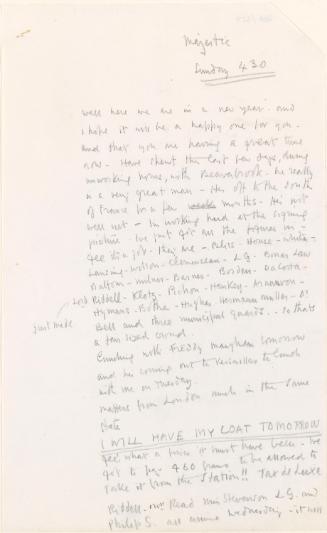 Majestic
Sunday 430
well here we are in a new year. and
I hope it will be a happy one for you.
and that you are having a great time
now - Have spent the last few days, during
unworking hours, with Beaverbrook - he really
is a very great man - He's off to the South
of France for a few weeks months - He's not
well yet - Im working hard at the signing
picture - I've just got all the figures in -
Gee its a job - they are - Balfour - House - White -
Lansing - Wilson - Clemenceau - L.G. - Bonar Law
Saltom - Milner - Barnes - Borden - Dafosta
just made Lord Riddell - Klotz - Pichon - Hankey -
Hymans - Botha - Hughes Hermann Muller - Dr
Bell and three municipal guards.. so thats
a fair sized crowd.
Lunching with Freddy Maugham tomorrow
and he's coming out to Versailles to lunch
with me on Tuesday.
matters from London much in the same
State
I WILL HAVE MY COAT TOMORROW
Gee what a price it must have been - I've
got to pay 460 francs to be allowed to
take it from the Station!! Tax de Luxe
Riddell. Mrs Read Miss Stevenson L.G. and
Philip S. all arrive Wednesday - it will